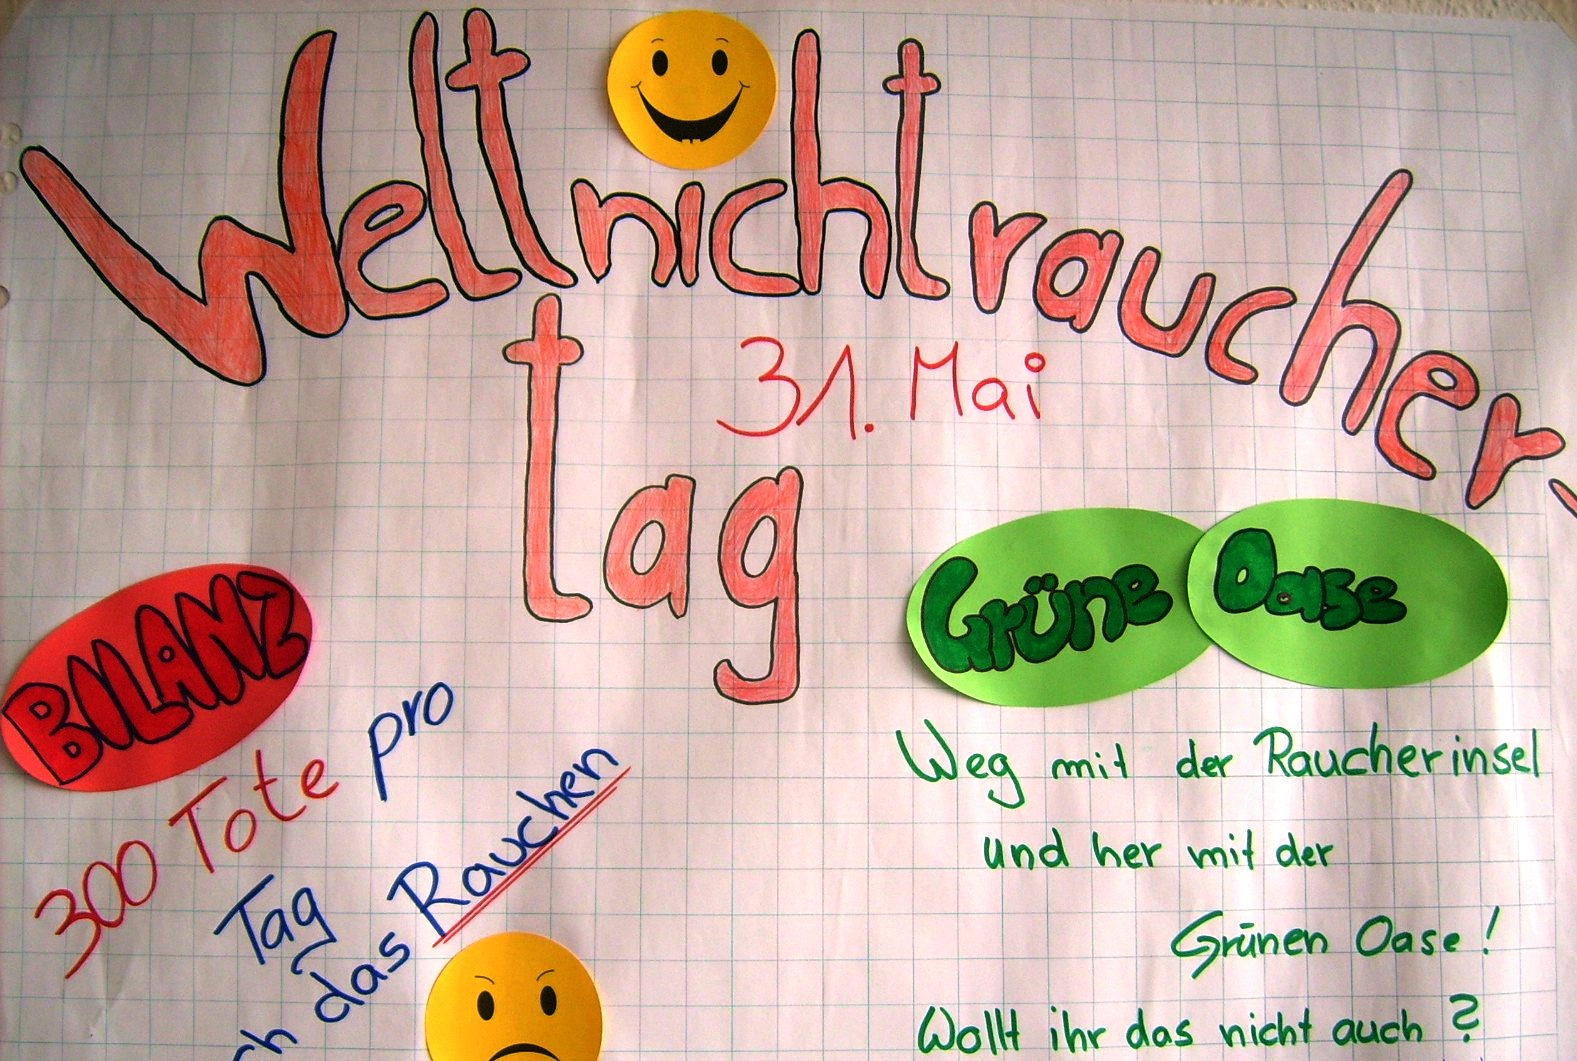 Weltnichtraucher-
tag
31. Mai
BILANZ
300 Tote pro
Tag
das Rauchen
Grüne Oase
Weg mit der Raucherinsel
und her mit der
Grünen Oase!
Wollt ihr das nicht auch?